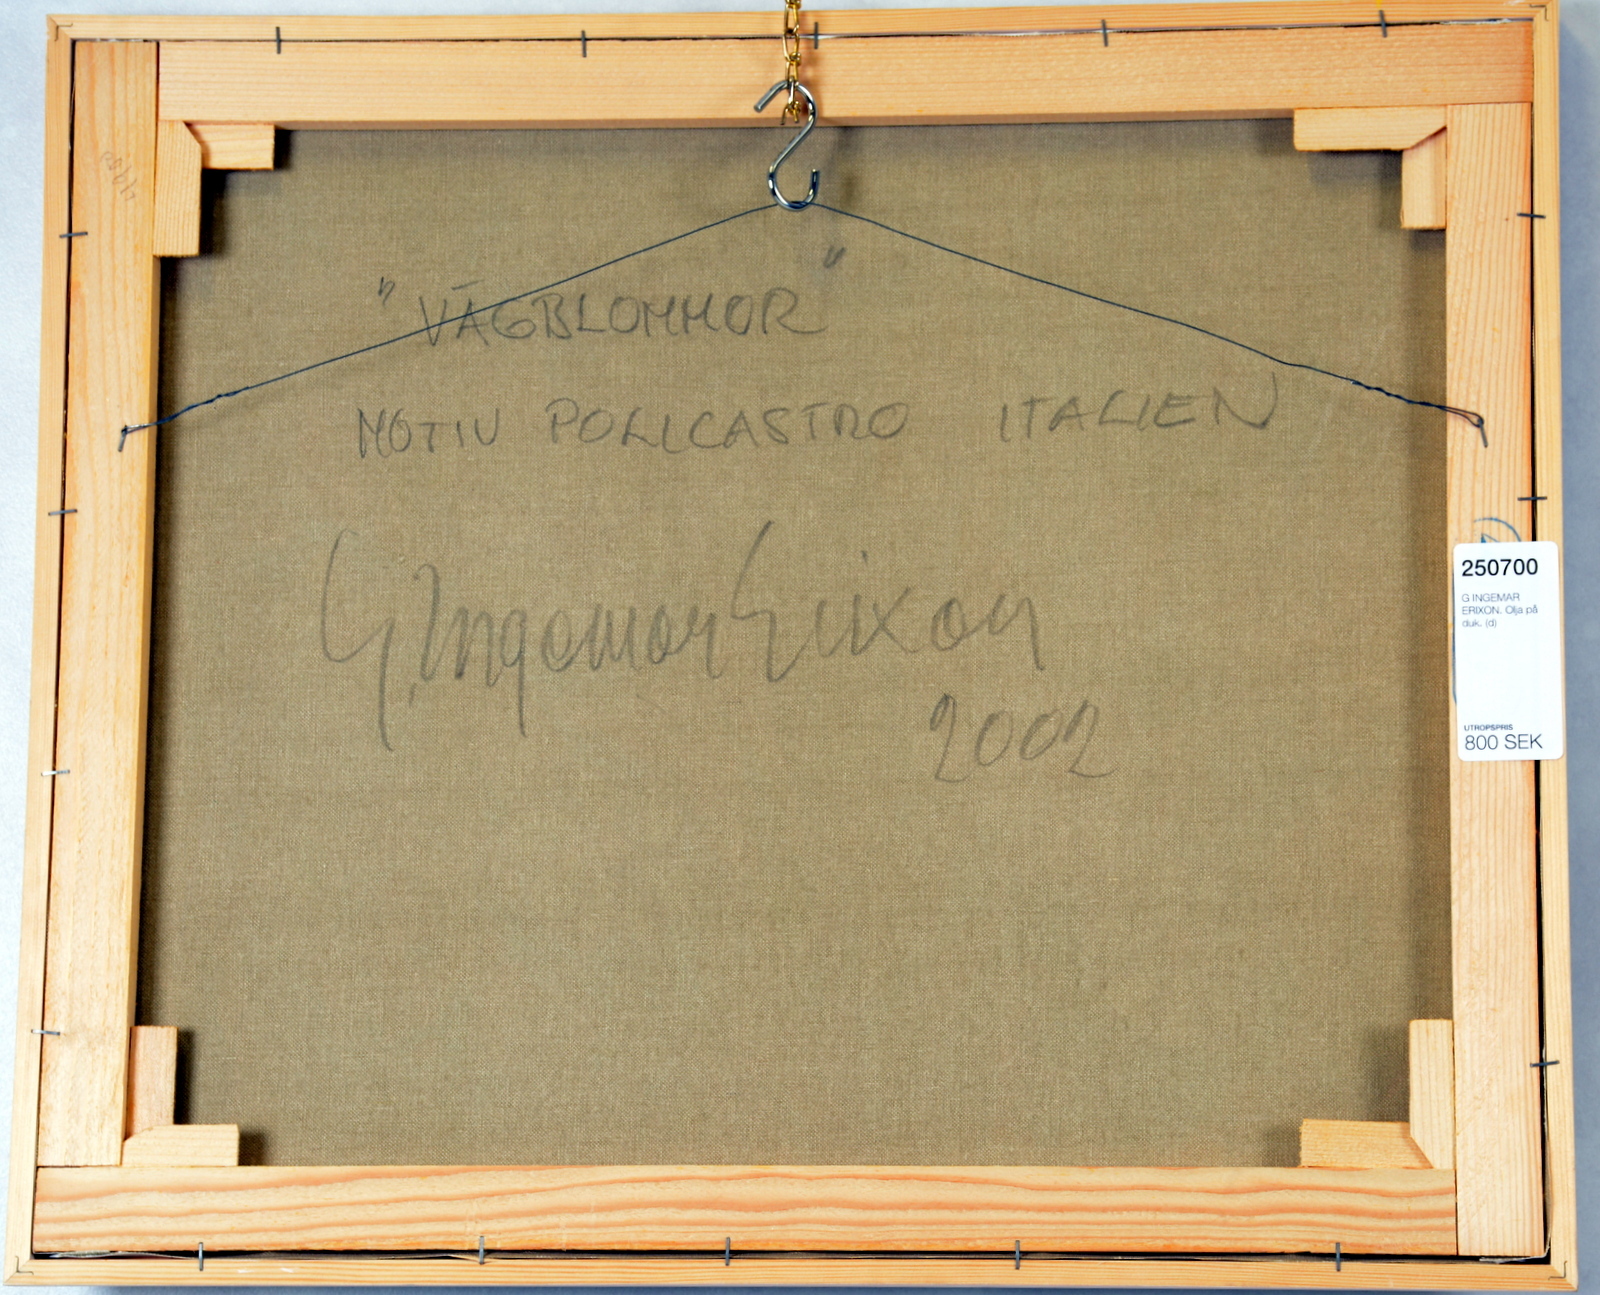 "VÄGBLOMMOR"
MOTIV POLICASTRO ITALIEN
G. Ingemar Erixon
2002
250700
G INGEMAR
ERIXON. Olja på
duk. (d)
UTROPSPRIS
800 SEK